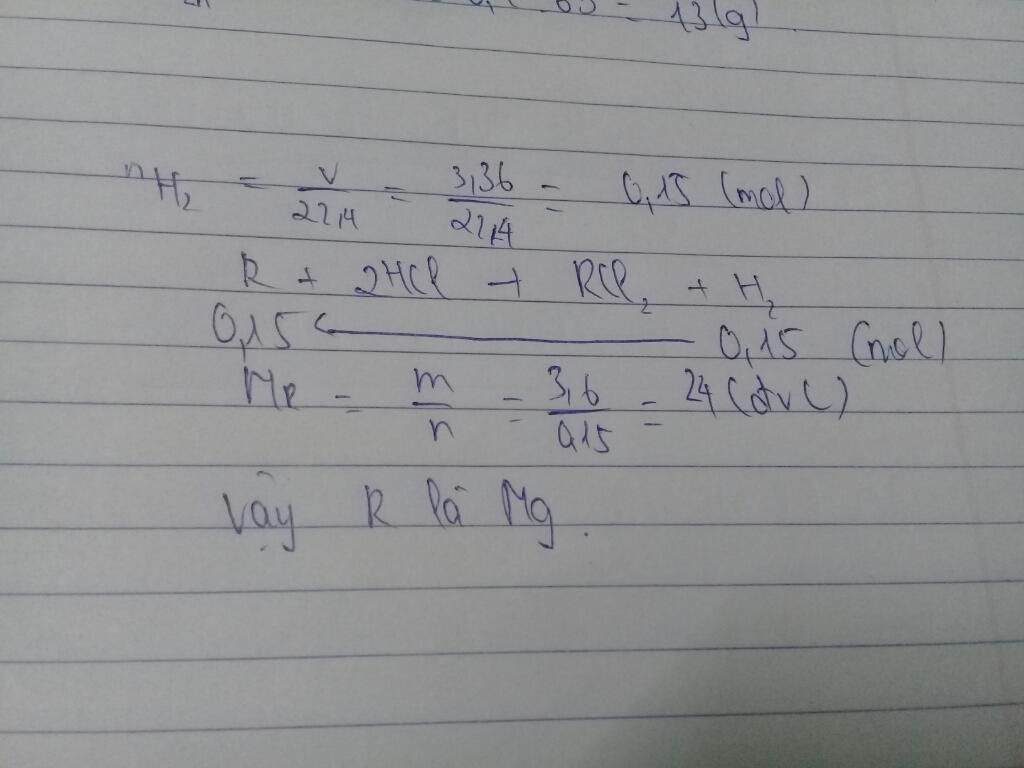 = 13(g)
nH₂ = V/22,4 = 3,36/22,4 = 0,15 (mol)
R + 2HCl → RCl₂ + H₂
0,15 ← 0,15 (mol)
MR = m/n = 3,6/0,15 = 24 (đvC)
Vậy R là Mg.